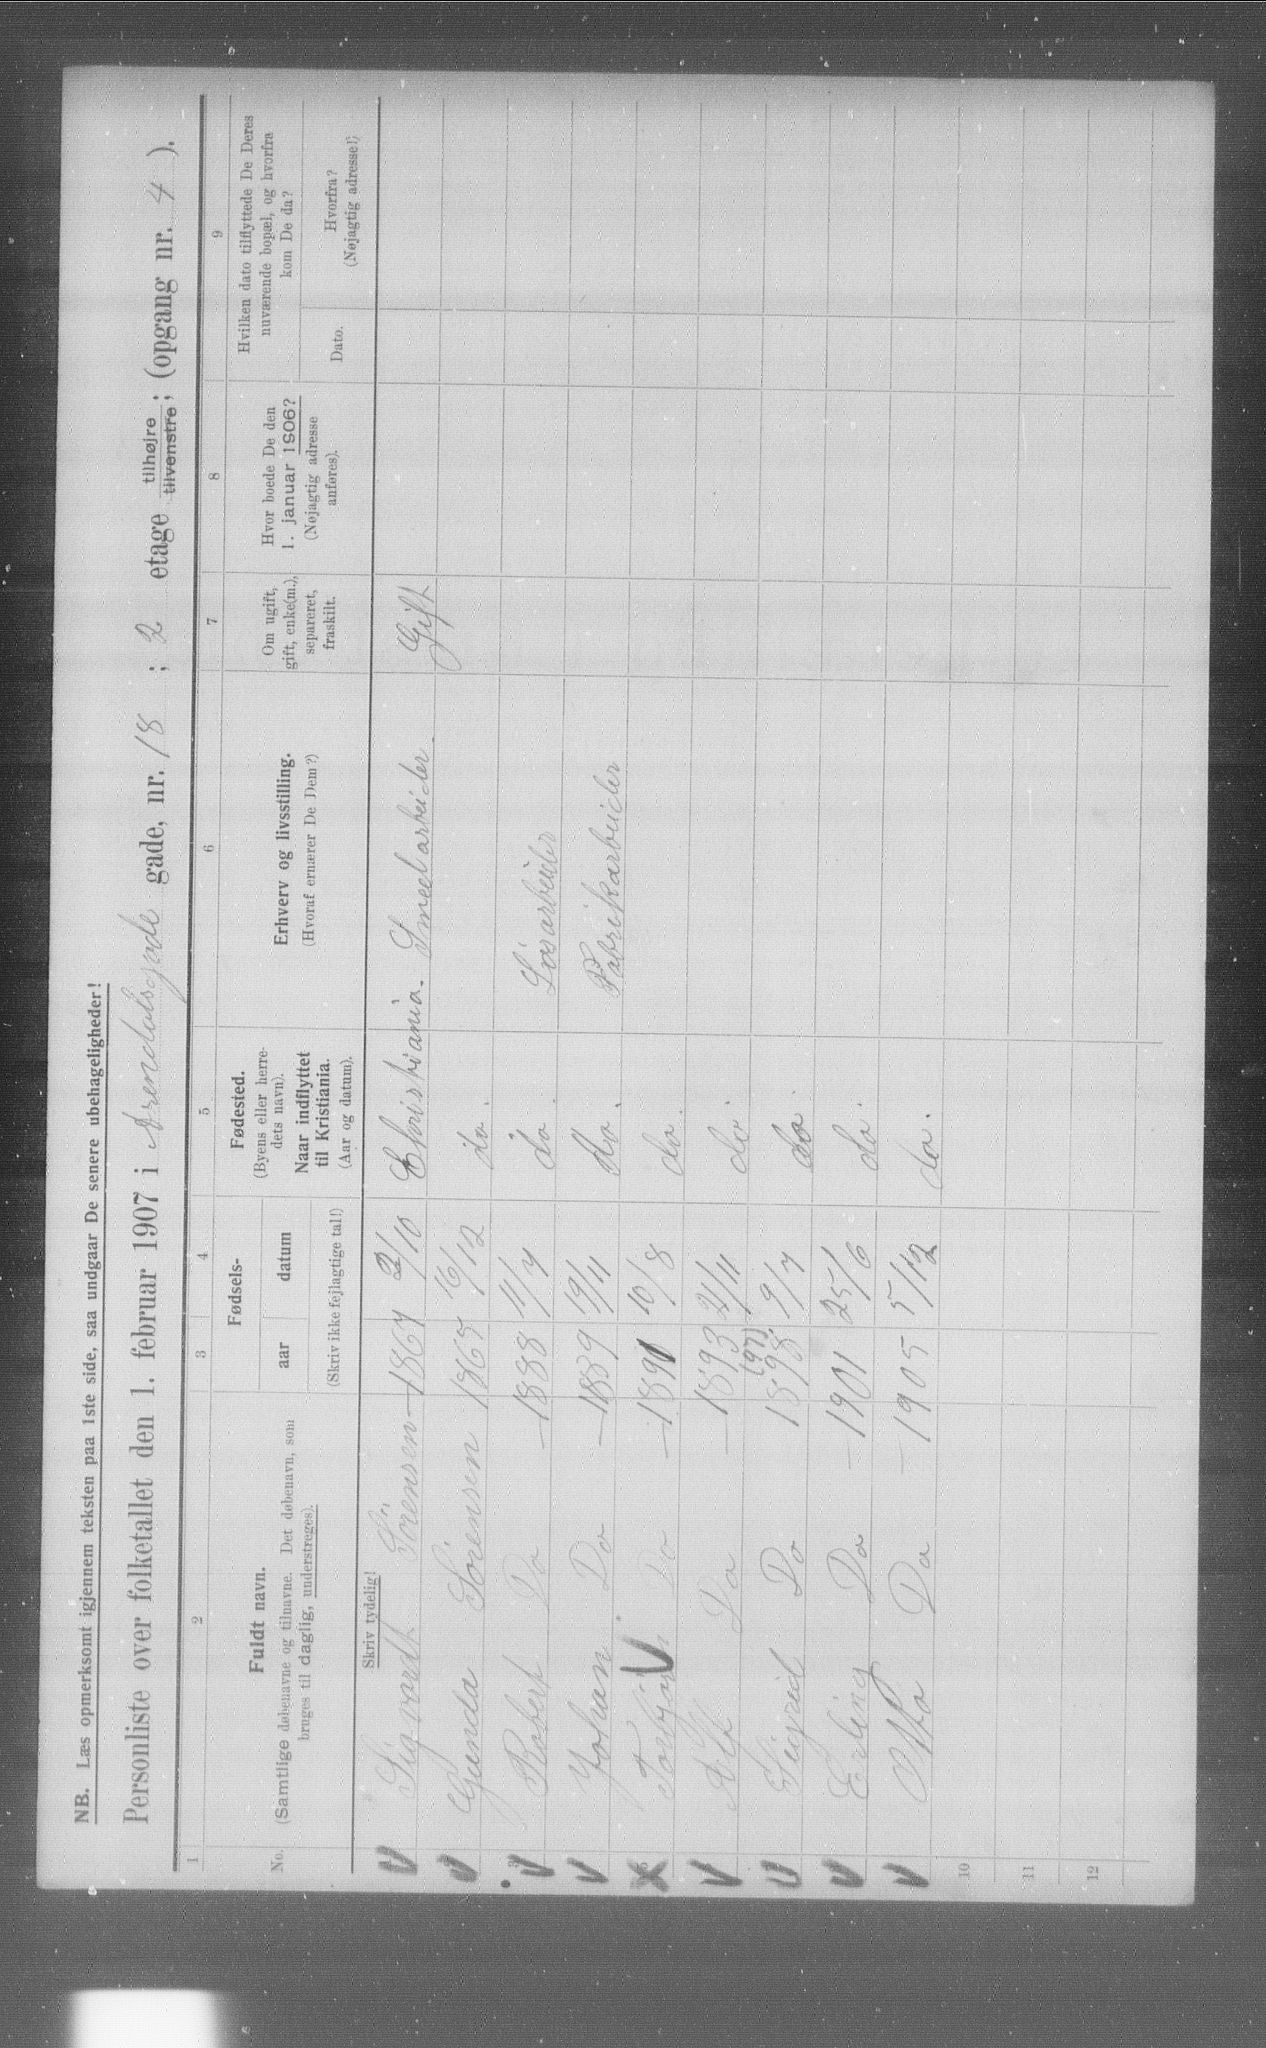 NB. Læs opmerksomt igjennem teksten paa 1ste side, saa undgaar De senere ubehageligheder!
Personliste over folketallet den 1. februar 1907 i Arendalsgade gade, nr. 18 ; 2 etage tilhøjre tilvenstre ; (opgang nr. 4 ).
1 2 3 4 5 6 7 8 9
No.
Fuldt navn.
(Samtlige døbenavne og tilnavne. Det døbenavn, som
bruges til daglig, understreges).
Fødsels-
aar datum
(Skriv ikke fejlagtige tal!)
Fødested.
(Byens eller herre-
dets navn).
Naar indflyttet
til Kristiania.
(Aar og datum).
Erhverv og livsstilling.
(Hvoraf ernærer De Dem?)
Om ugift,
gift, enke(m.),
separeret,
fraskilt.
Hvor boede De den
1. januar 1906?
(Nøjagtig adresse
anføres).
Hvilken dato tilflyttede De Deres
nuværende bopæl, og hvorfra
kom De da?
Dato.
Hvorfra?
(Nøjagtig adresse!)
Skriv tydelig!
Sigvardt Sörensen 1867 2/10 Christiania. Smedarbeider. Gift
Gunda Sörensen 1865 16/12 do.
Robert Do 1888 11/7 do. Løsarbeider
Johan Do 1889 19/11 do. Fabrikarbeider
Torbjørn Do 1891 10/8 do.
Alf Do 1893 21/11 do.
Sigrid Do 1898 (97) 9/7 do.
Erling Do 1901 25/6 do.
Otto Do 1905 5/12 do.
10
11
12